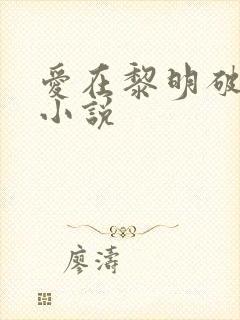 愛在黎明破
小說
廖濤